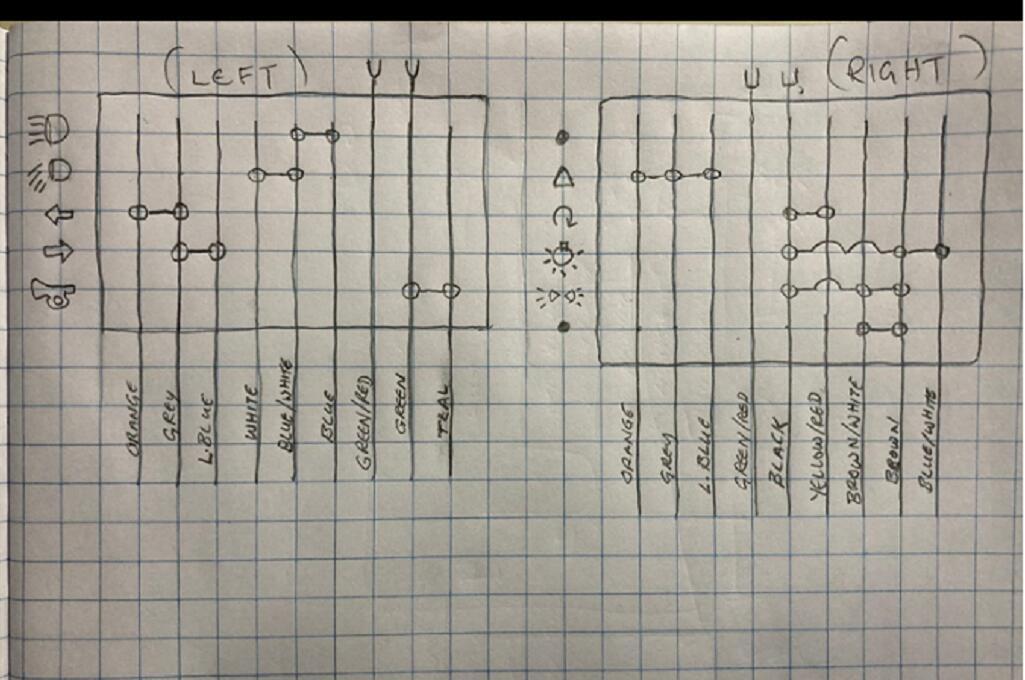 (LEFT)
(RIGHT)
ORANGE
GREY
L.BLUE
WHITE
BLUE/WHITE
BLUE
GREEN/RED
GREEN
TEAL
ORANGE
GREY
L.BLUE
GREEN/RED
BLACK
YELLOW/RED
BROWN/WHITE
BROWN
BLUE/WHITE